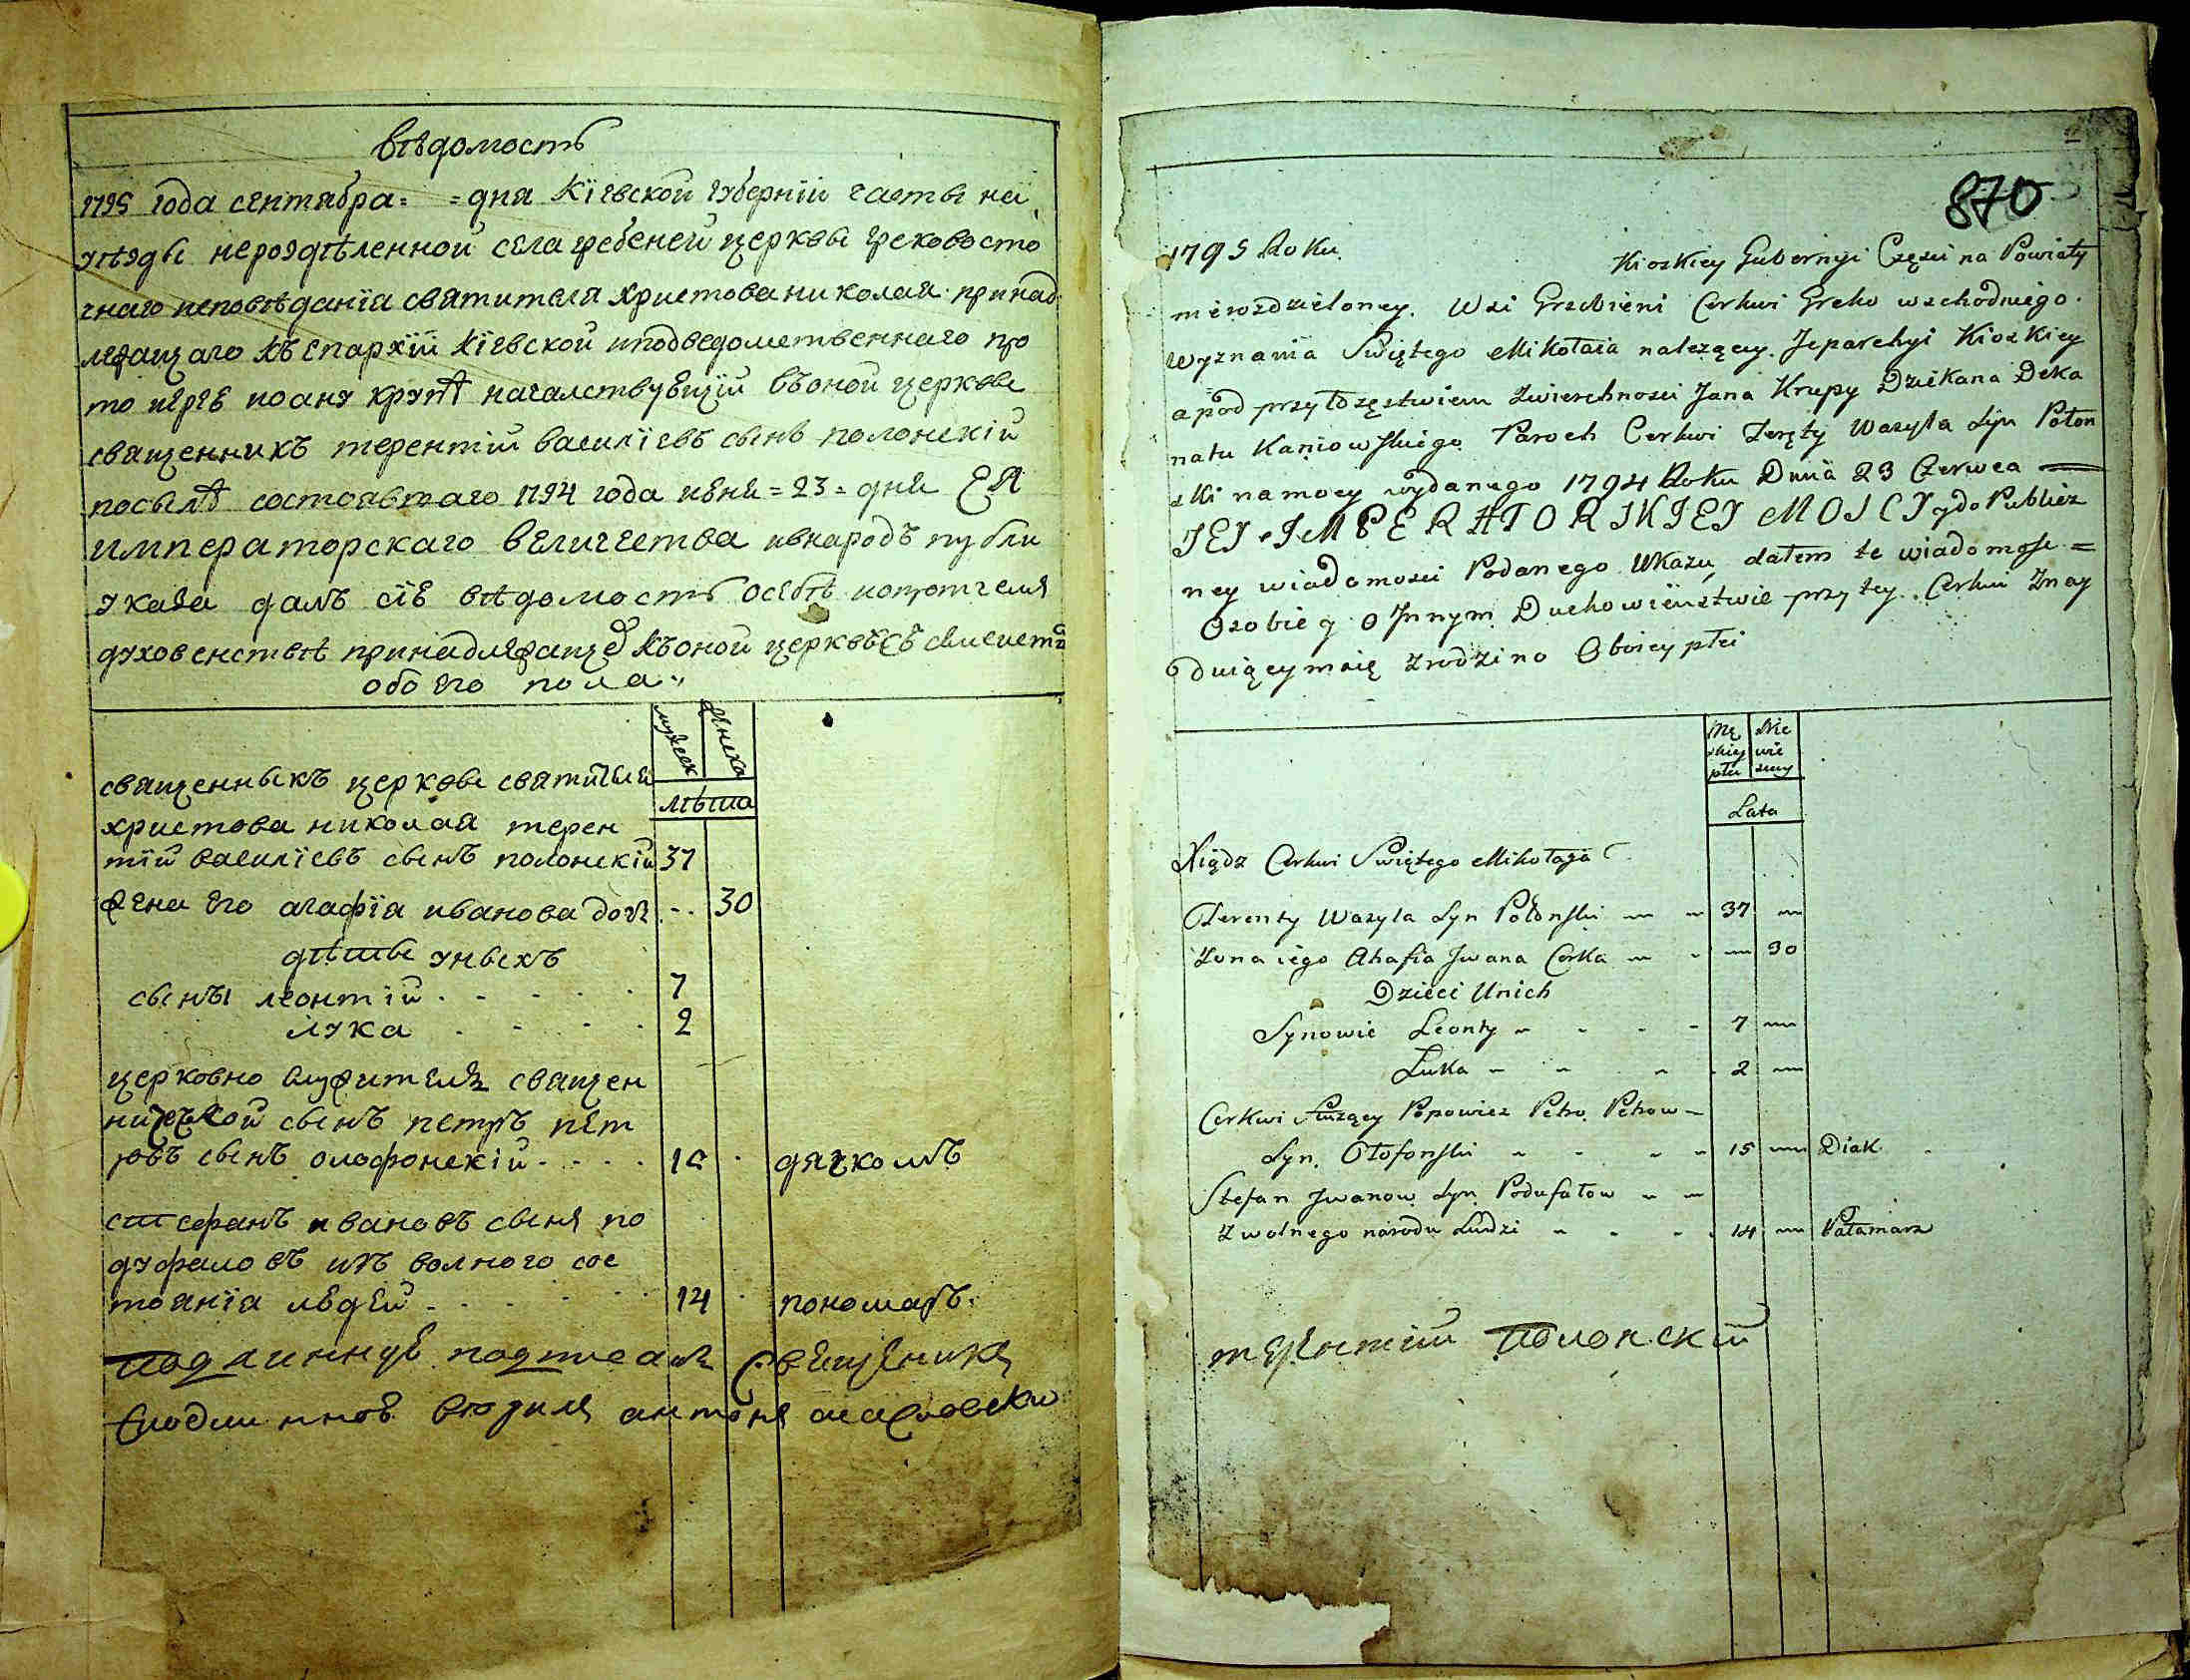 вѣдомость
1795 года сентября = = дня Кїевской губернїи части на
уѣзды нероздѣленной села гребеней церквы грековосто
чнаго исповѣданїа святителя христова николая принад
лежащаго къ епархїи кїевской и подведомственнаго про
то иерею иоану крупѣ началствующїй въ оной церквы
священникъ терентїй василїевъ сынъ полонскїй
посылѣ состоявшаго 1794 года июня = 23 = дня ЕЯ
императорскаго величества ивнародъ публи
указа далъ сїю вѣдомость осебѣ и
духовенствѣ принадлежаще къ оной церквѣ съ
обоего пола
мужеск женска
лѣта
священныкъ церквы святителя
христова николая терен
тїй василїевъ сынъ полонскїй 37
жена его агафїя иванова дочь 30
дѣты уныхъ
сыны леонтїй 7
лука 2
церковно служитель священ
сынъ петръ пет
ровъ сынъ олофонскїй 15 дячкомъ
стефанъ ивановъ сынъ по
дуфаловъ изъ волного сос
тоянїа людей 14 пономаръ.
подлинную подписалъ священикъ
870
1795 Roku. Kioskiey Gubernyi Częsci na Powiaty
nierozdzieloney. Wsi Grzebieni Cerkwi Greko wschodniego.
wyznania Swiętego Mikołaia nalezącey. Jeparchyi Kioskiey
a pod przyłozęstwiem Zwierchnosci Jana Krupy Dziekana Deka
natu Kaniowskiego Paroch Cerkwi Teręty Wasyla Syn Połon
ski na mocy wydanego 1794 Roku Dnia 23 Czerwca
JEJ IMPERATORSKIEJ MOSCI y do Publicz
ney wiadomosci Podanego Ukazu, datem te wiadomość =
Osobie y o Jnnym Duchowieństwie przy tey Cerkwi Znay
duiącym się z rodzino Oboiey płci
Mę skiey płci Nie wie sciey
Lata
Xiądz Cerkwi Swiętego Mikołaja
Terenty Wasyla Syn Połonski 37
Zona iego Ahafia Jwana Corka 30
Dzieci Unich
Synowie Leonty 7
Łuka 2
Cerkwi Służący Popowicz Petro Petrow
Syn. Ołofonski 15 Diak
Stefan Jwanow Syn Podufałow
Z wolnego narodu Ludzi 14 Pałamarz
терентїй Полонскїй